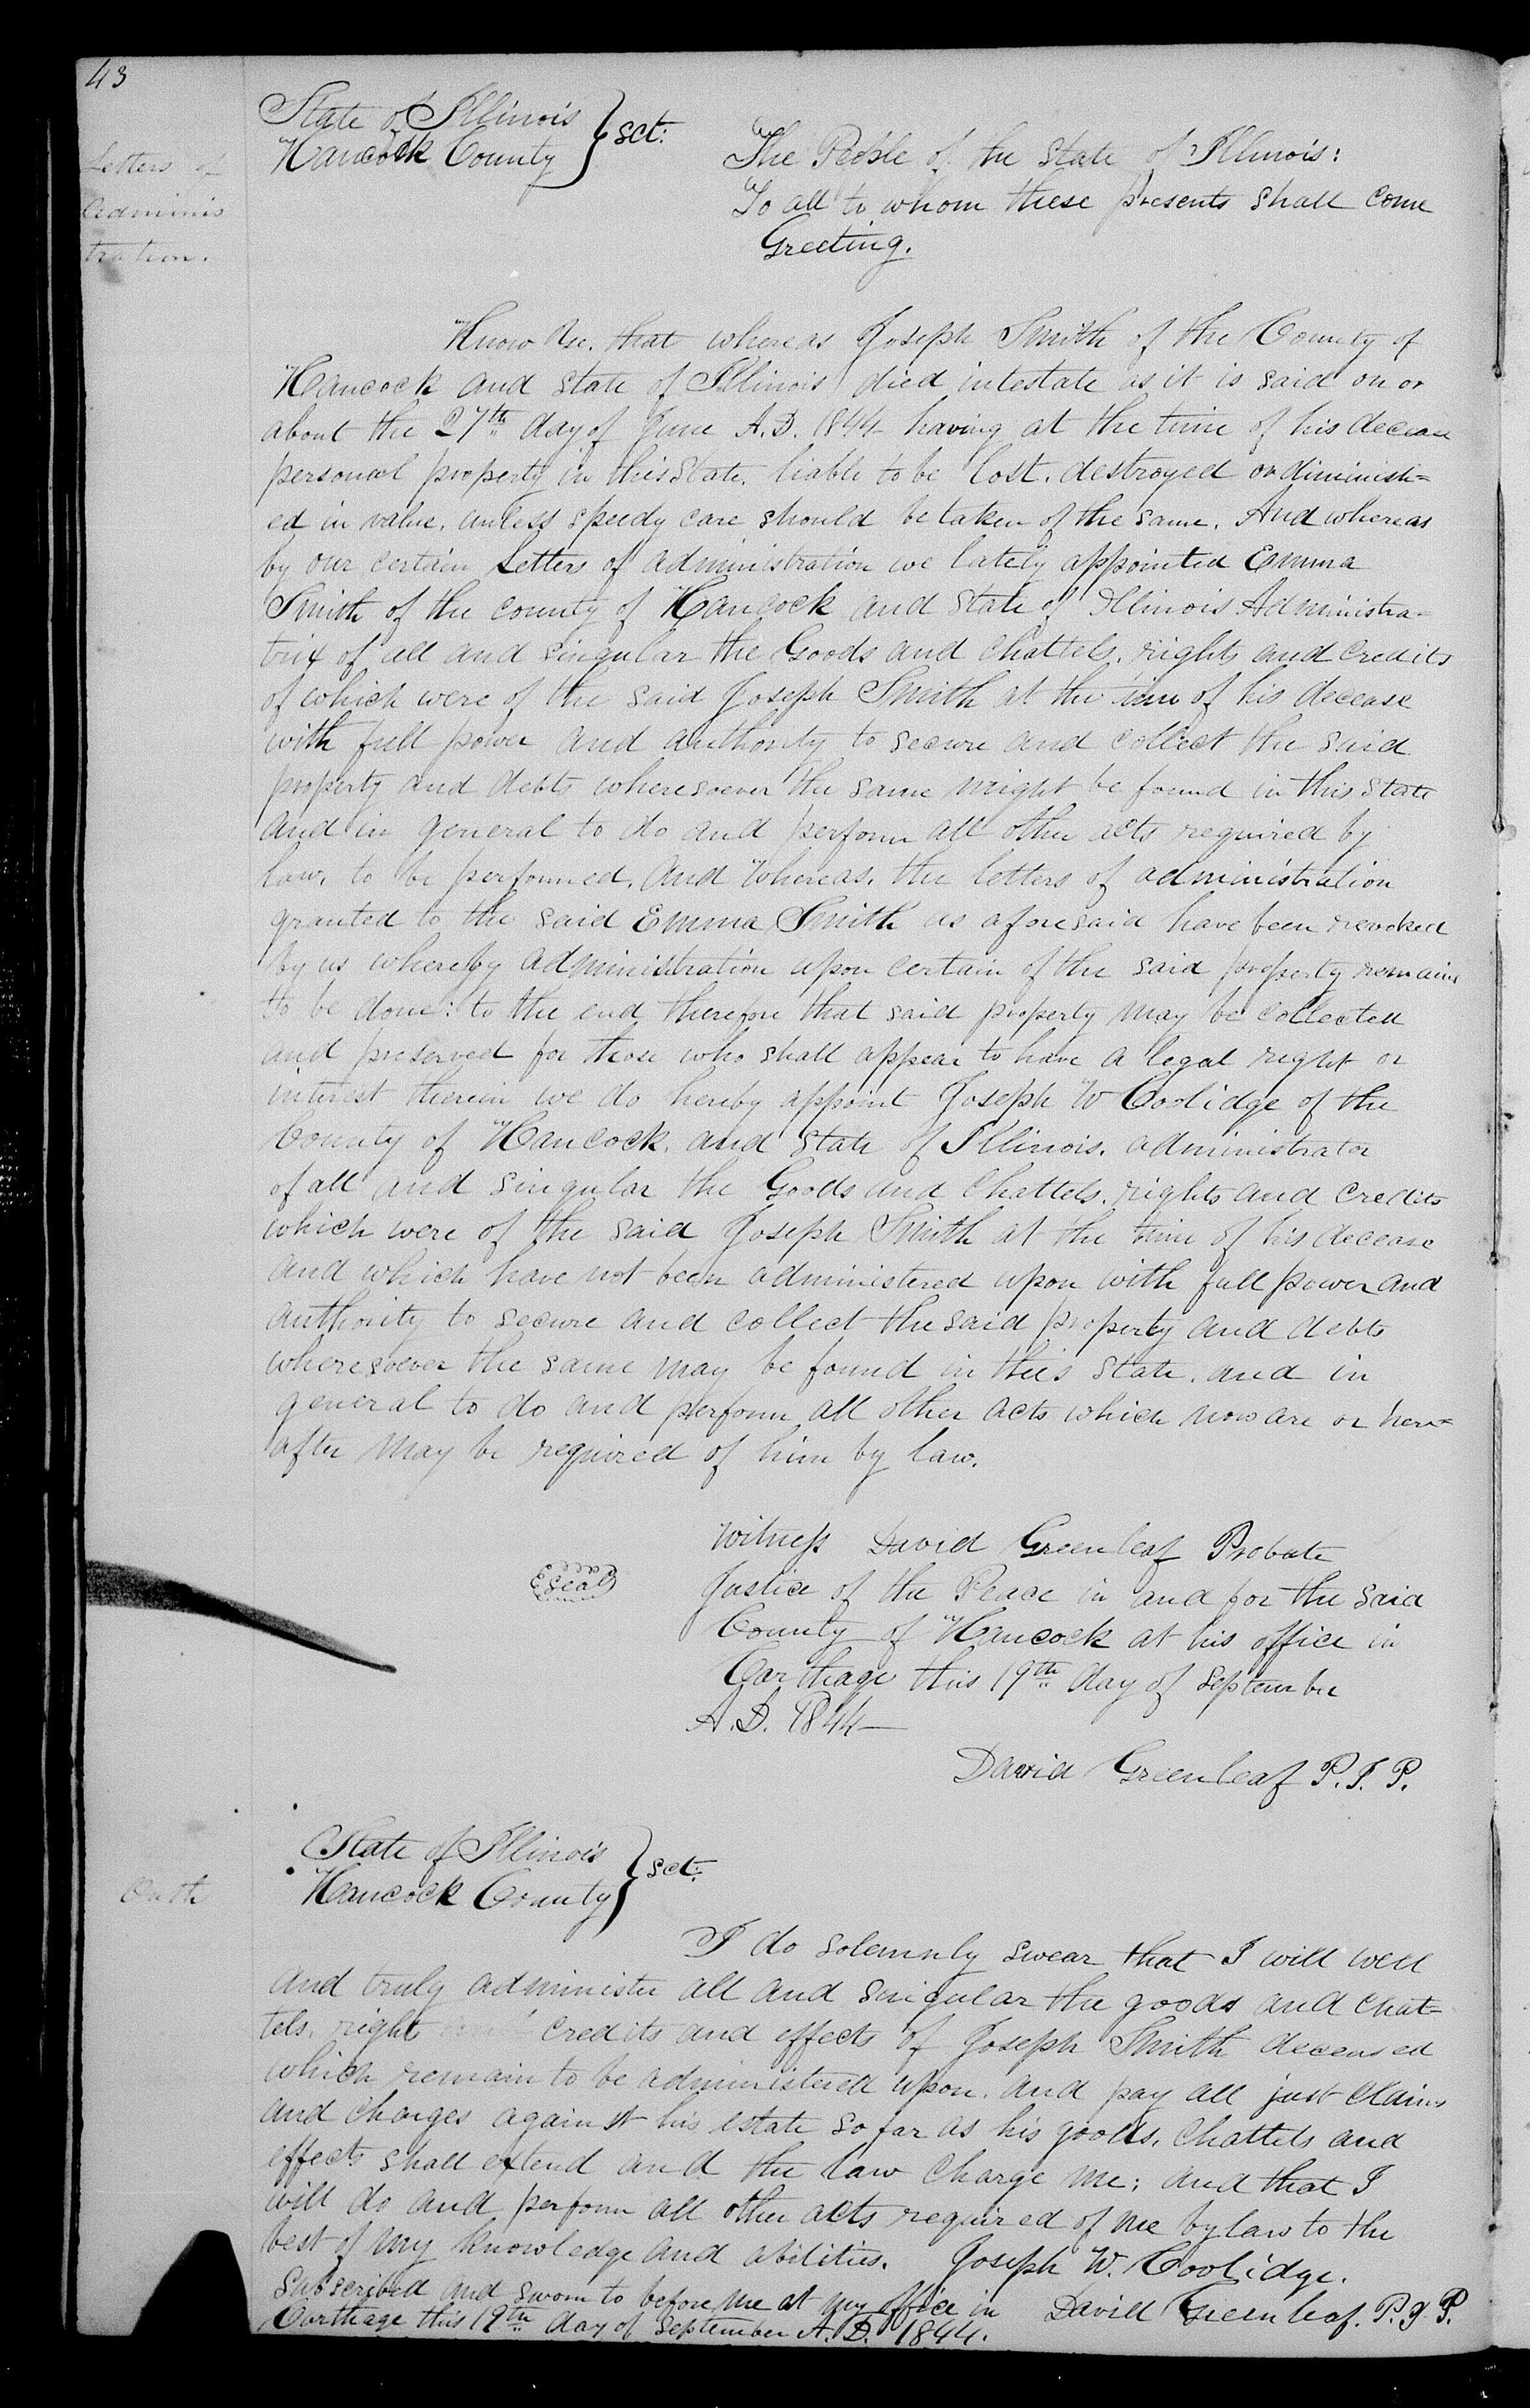 43
State of Illinois
Hancock County } sct:
Letters of
Adminis
tration.
The People of the State of Illinois:
To all to whom these presents shall come
Greeting.
Know Ye, that whereas Joseph Smith of the County of
Hancock and State of Illinois died intestate as it is said on or
about the 27th day of June A.D. 1844 having at the time of his decease
personal property in this State, liable to be lost, destroyed or diminish=
ed in value, unless speedy care should be taken of the same. And whereas
by our certain Letters of administration we lately appointed Emma
Smith of the county of Hancock and State of Illinois Administra=
trix of all and singular the Goods and Chattels, rights and credits
of which were of the said Joseph Smith at the time of his decease
with full power and authority to secure and collect the said
property and debts wheresoever the same might be found in this State
and in general to do and perform all other acts required by
law, to be performed. And Whereas, the letters of administration
granted to the said Emma Smith as aforesaid have been revoked
by us whereby administration upon certain of the said property remains
to be done: to the end therefore that said property may be collected
and preserved for those who shall appear to have a legal right or
interest therein we do hereby appoint Joseph W Coolidge of the
County of Hancock, and State of Illinois, administrator
of all and singular the Goods and Chattels, rights and credits
which were of the said Joseph Smith at the time of his decease
and which have not been administered upon with full power and
authority to secure and collect the said property and debts
wheresoever the same may be found in this State, and in
general to do and perform all other acts which now are or here=
after may be required of him by law.
Witness David Greenleaf Probate
Seal
Justice of the Peace in and for the said
County of Hancock at his office in
Carthage this 19th day of September
A.D. 1844
David Greenleaf P.J.P.
State of Illinois
Hancock County } sct:
Oath
I do solemnly swear that I will well
and truly administer all and singular the goods and chat=
tels, right credits and effects of Joseph Smith deceased
which remain to be administered upon, and pay all just claims
and charges against his estate so far as his goods, chattels and
effects shall extend and the law charge me; and that I
will do and perform all other acts required of me by law to the
best of my knowledge and abilities. Joseph W. Coolidge.
Subscribed and sworn to before me at my office in David Greenleaf. P.J.P.
Carthage this 19th day of September A.D. 1844.